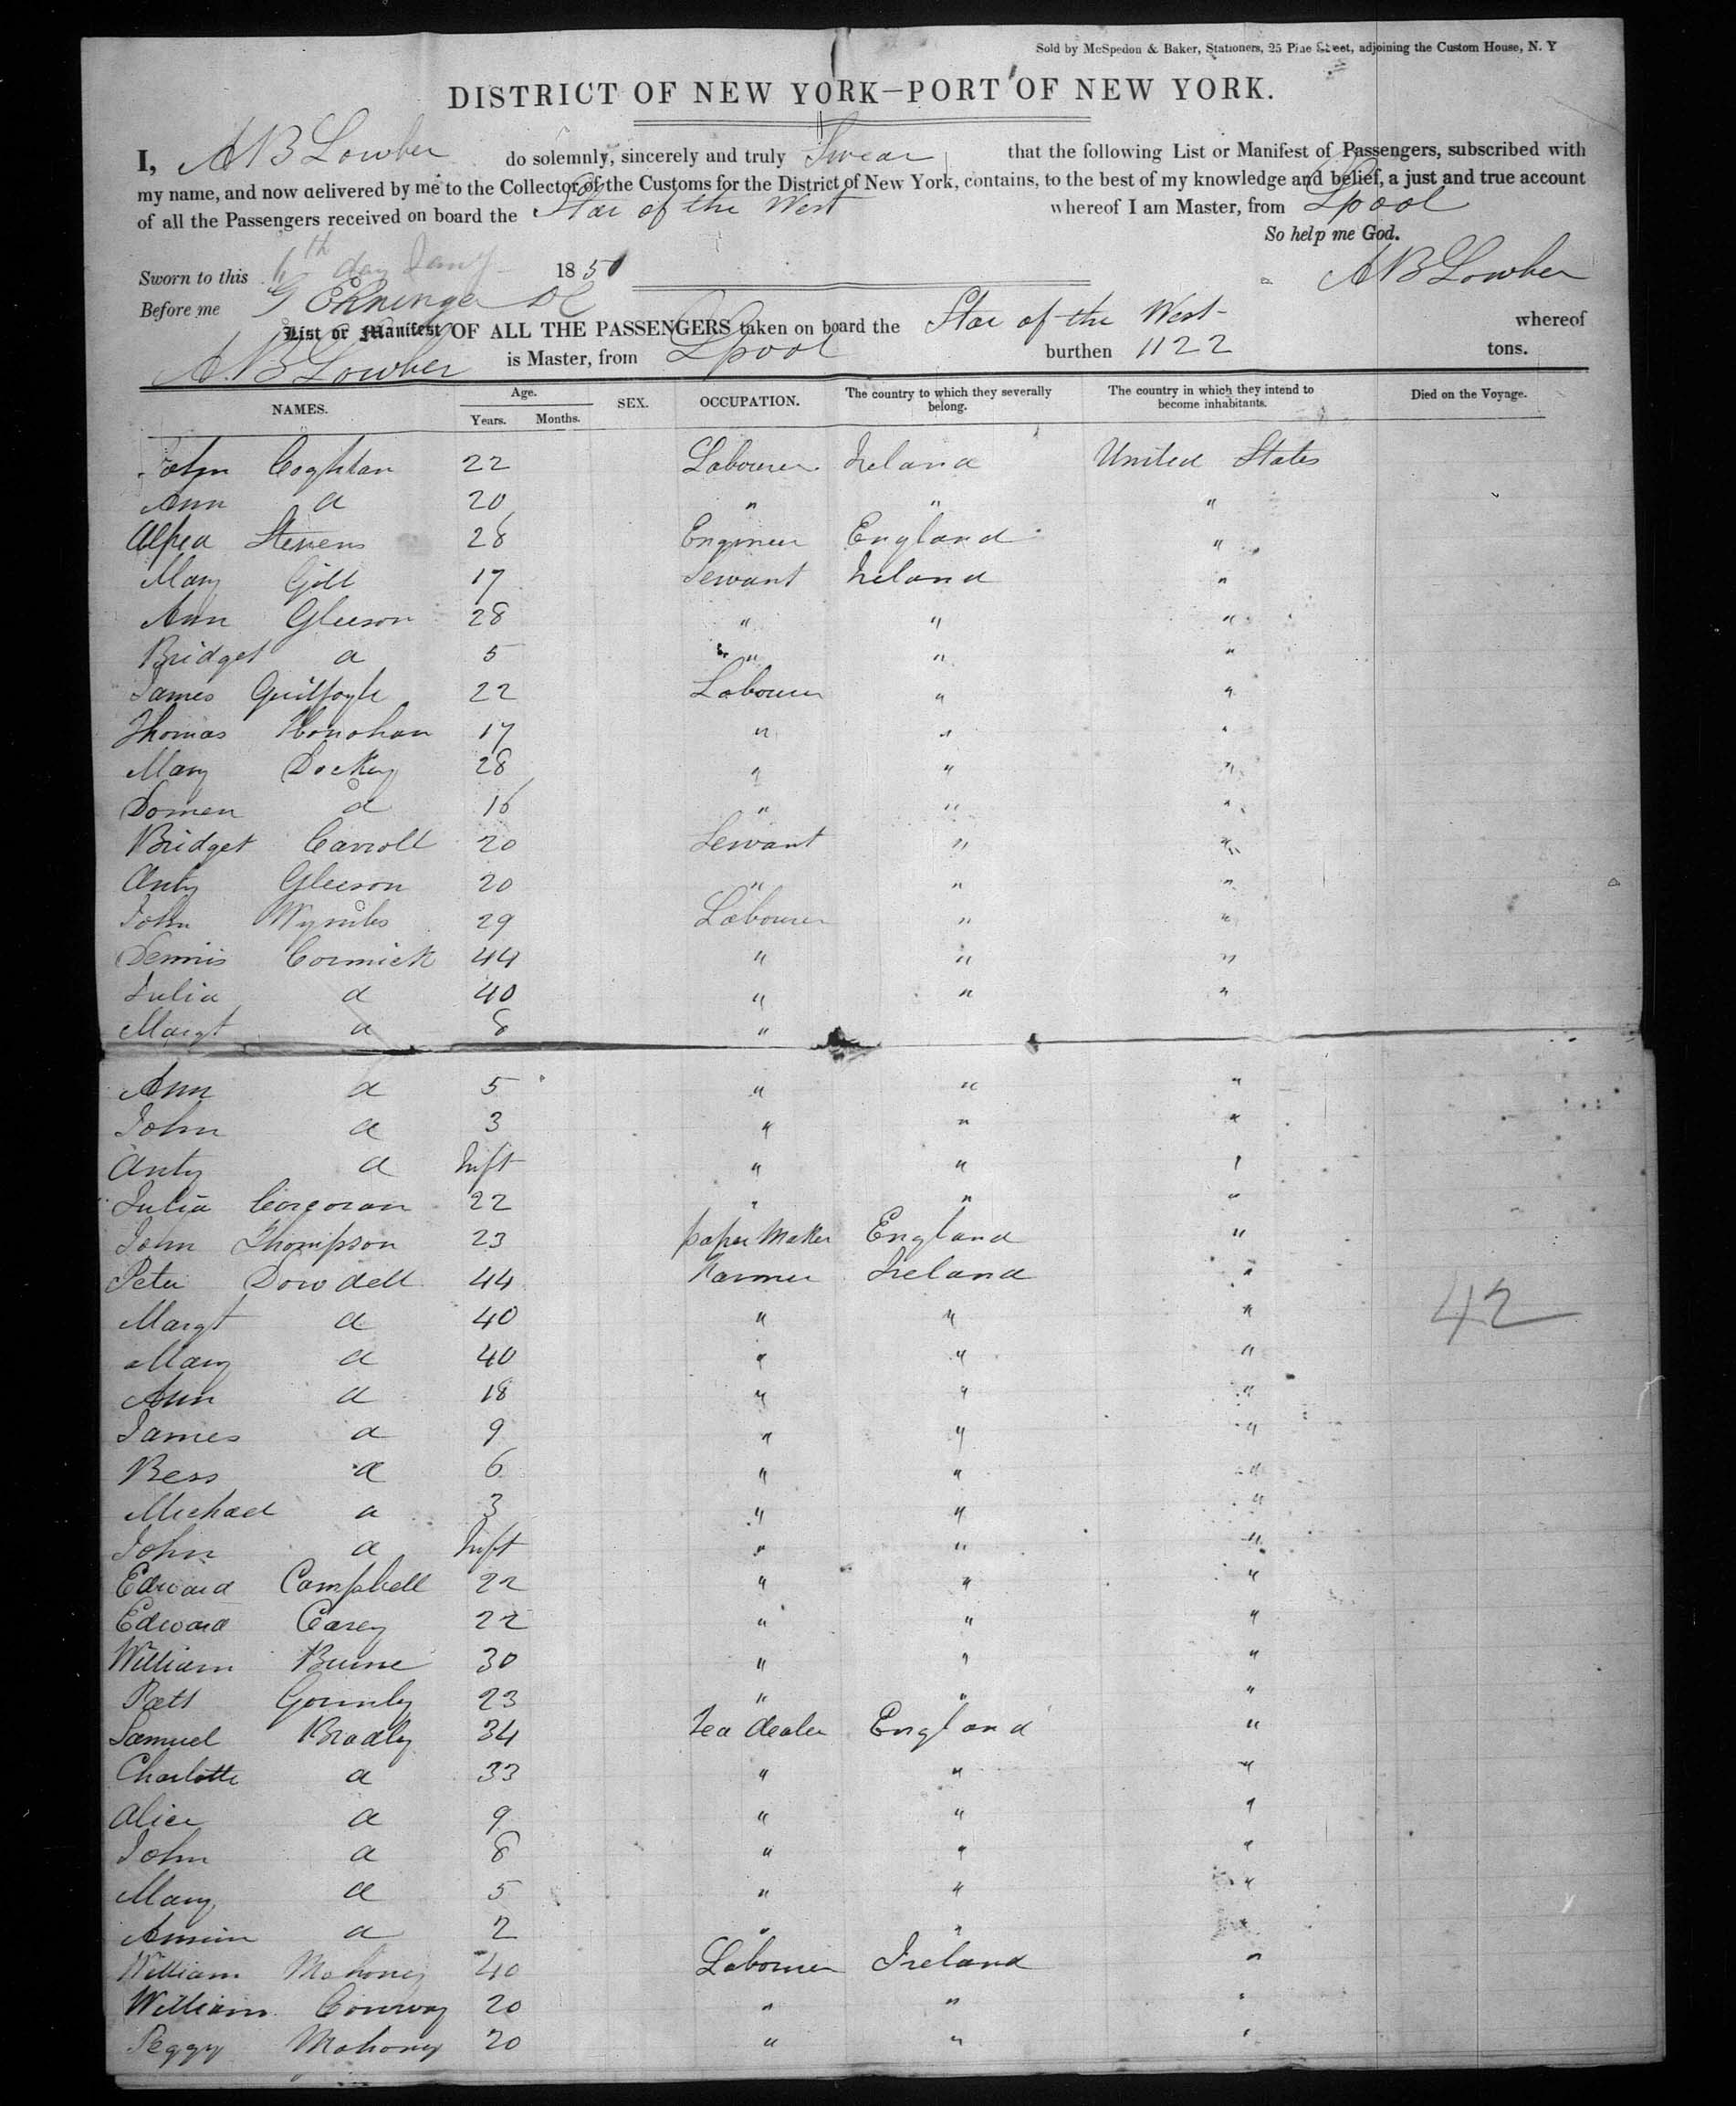 Sold by McSpedon & Baker, Stationers, 25 Pine Street, adjoining the Custom House, N. Y
DISTRICT OF NEW YORK—PORT OF NEW YORK.
I, A B Lowber do solemnly, sincerely and truly Swear that the following List or Manifest of Passengers, subscribed with
my name, and now delivered by me to the Collector of the Customs for the District of New York, contains, to the best of my knowledge and belief, a just and true account
of all the Passengers received on board the Star of the West whereof I am Master, from Lpool
So help me God.
Sworn to this 6th day Jany 1850 A B Lowber
Before me
List or Manifest OF ALL THE PASSENGERS taken on board the Star of the West whereof
A.B Lowber is Master, from Lpool burthen 1122 tons.
NAMES. Age. Years. Months. SEX. OCCUPATION. The country to which they severally belong. The country in which they intend to become inhabitants. Died on the Voyage.
John Coghlan 22 Labourer Ireland United States
Ann d 20 " " "
Alfred Stevens 28 Engineer England "
Mary Gill 17 Servant Ireland "
Ann Gleeson 28 " " "
Bridget d 5 " " "
James Guilfoyle 22 Labourer " "
Thomas Honohan 17 " " "
Mary Dockey 28 " " "
d 16 " " "
Bridget Carroll 20 Servant " "
Anty Gleeson 20 " " "
John Wymbs 29 Labourer " "
Dennis Cormick 44 " " "
Julia d 40 " " "
Margt d 8 "
Ann d 5 " " "
John d 3 " " "
Anty d Inft " " "
Julia Corcoran 22 " " "
John Thompson 23 paper Maker England "
Peter Dowdell 44 Farmer Ireland "
Margt d 40 " " "
42
Mary d 40 " " "
Ann d 18 " " "
James d 9 " " "
Bess d 6 " " "
Michael d 3 " " "
John d Inft " " "
Edward Campbell 22 " " "
Edward Carey 22 " " "
William Burne 30 " " "
Patt Gormly 23 " " "
Samuel Bradly 34 tea dealer England "
Charlotte d 33 " " "
Alice d 9 " " "
John d 8 " " "
Mary d 5 " " "
d 2 " " "
William Mahoney 40 Labourer Ireland "
William Conway 20 " " "
Peggy Mahony 20 " " "